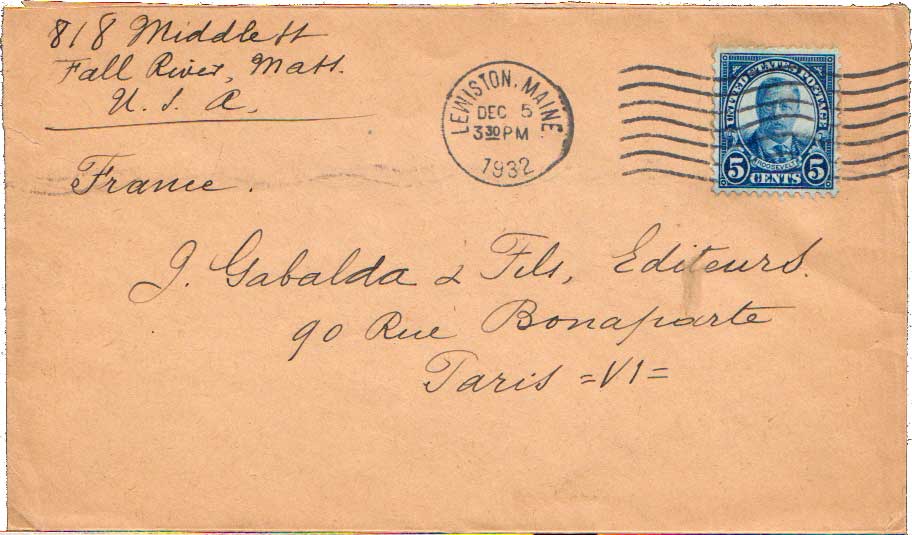 818 Middle St
Fall River, Mass.
U. S. A.
France.
LEWISTON, MAINE.
DEC 5
3 30 PM
1932
UNITED STATES POSTAGE
ROOSEVELT
5 CENTS 5
J. Gabalda & Fils, Editeurs.
90 Rue Bonaparte
Paris =VI=